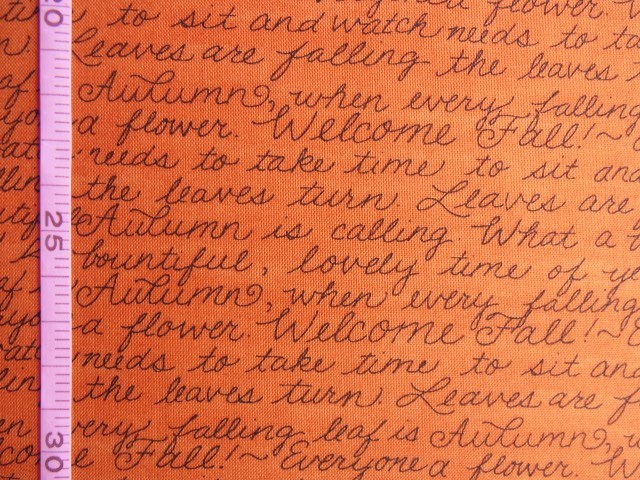 20
to sit and watch needs to
n. Leaves are falling the leaves
of Autumn, when every falling
a flower. Welcome Fall!~
needs to take time to sit and
the leaves turn. Leaves are
25
Autumn is calling. What a
bountiful, lovely time of
of Autumn, when every falling
a flower. Welcome Fall!~
needs to take time to sit and
the leaves turn. Leaves are f
very falling leaf is Autumn,
30
e Fall!~ Everyone a flower. W